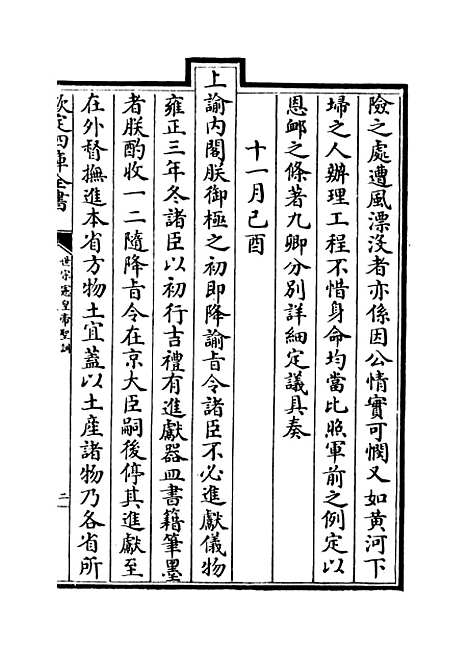 險之處遭風漂没者亦係因公情實可憫又如黄河下
埽之人辦理工程不惜身命均當比照軍前之例定以
恩䘏之條著九卿分別詳細定議具奏
十一月己酉
上諭内閣朕御極之初即降諭旨令諸臣不必進獻儀物
雍正三年冬諸臣以初行吉禮有進獻器皿書籍筆墨
者朕酌收一二隨降旨令在京大臣嗣後停其進獻至
在外督撫進本省方物土宜蓋以土產諸物乃各省所
欽定四庫全書
世宗憲皇帝聖訓
二